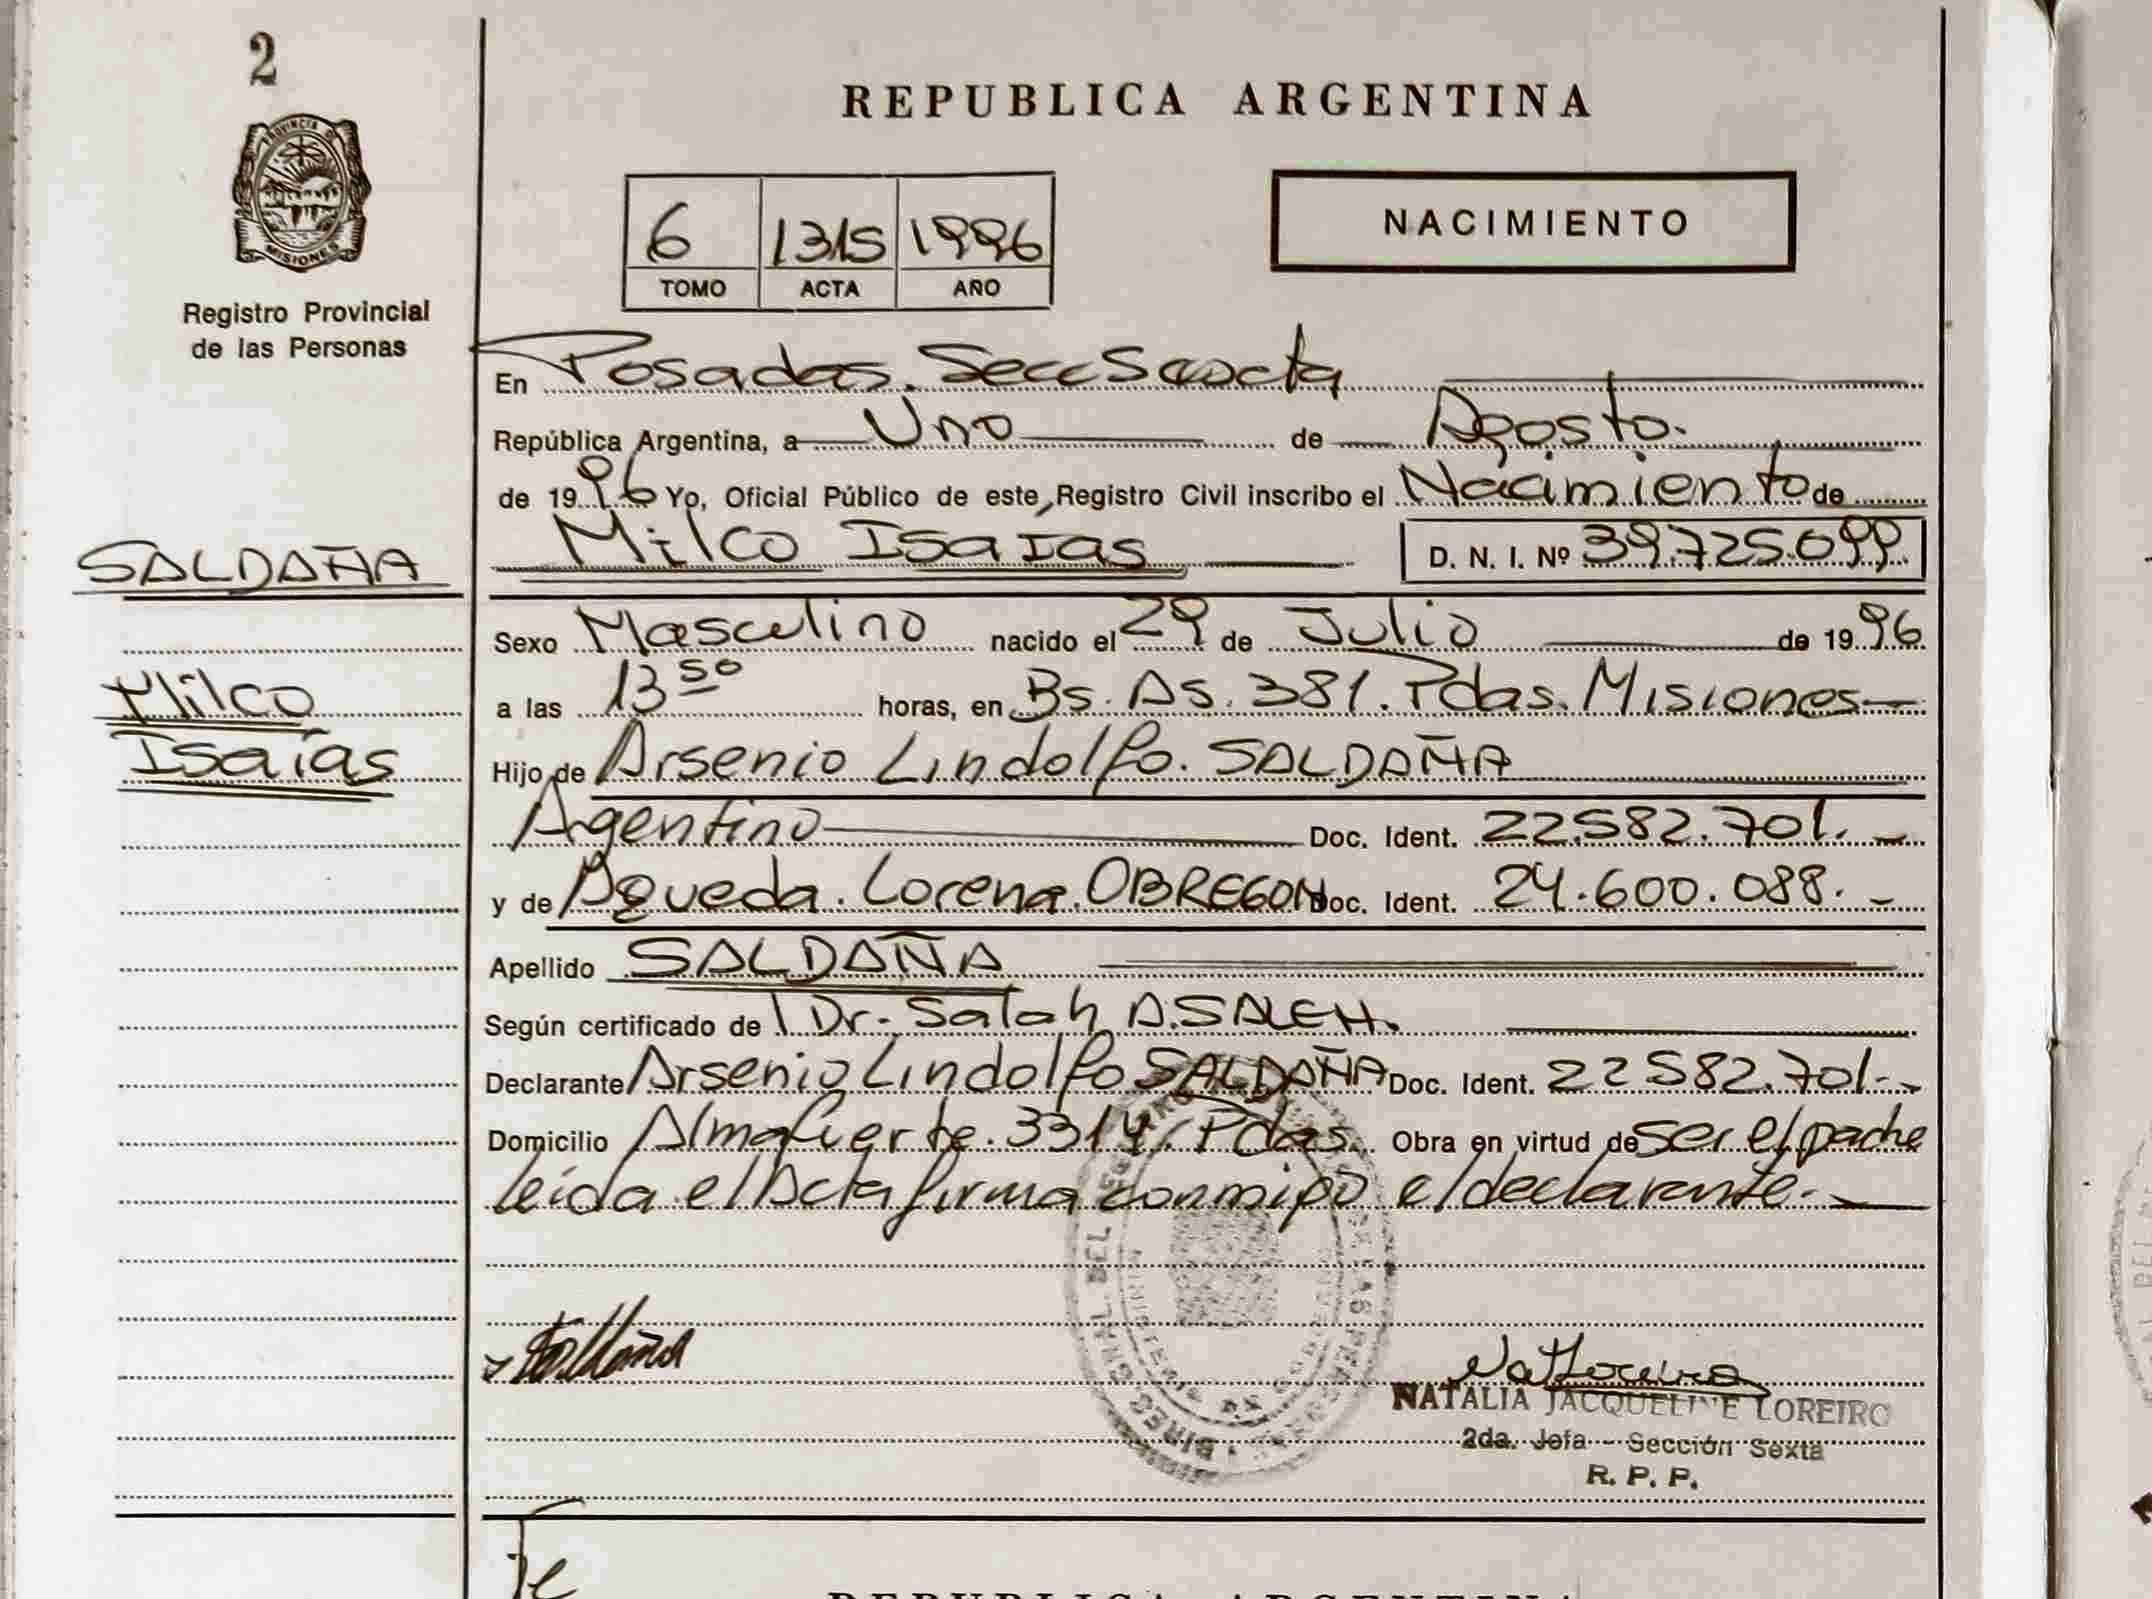 2
PROVINCIA D
MISIONES
Registro Provincial
de las Personas
SALDAÑA
Milco
Isaías
REPUBLICA ARGENTINA
6 1315 1996
TOMO ACTA AÑO
NACIMIENTO
En Posadas. Secc Sexta
República Argentina, a Uno de Agosto.
de 1996 Yo, Oficial Público de este Registro Civil inscribo el Nacimiento de
Milco Isaías D. N. I. Nº 39.725.099.
Sexo Masculino nacido el 29 de Julio de 1996
a las 13 50 horas, en Bs. As. 381. Pdas. Misiones
Hijo de Arsenio Lindolfo. SALDAÑA
Argentino Doc. Ident. 22.582.701.
y de Agueda. Lorena. OBREGON Doc. Ident. 24.600.088.
Apellido SALDAÑA
Según certificado de Dr. Salah A. SALEH.
Declarante Arsenio Lindolfo SALDAÑA Doc. Ident. 22 582.701.
Domicilio Almafuerte. 3314. Pdas. Obra en virtud de ser el padre
leída el Acta firma conmigo el declarante.
Saldaña
Nat Loreiro
NATALIA JACQUELINE LOREIRO
2da. Jefa - Sección Sexta
R. P. P.
DIREC. GNAL. DEL
REPUBLICA ARGENTINA